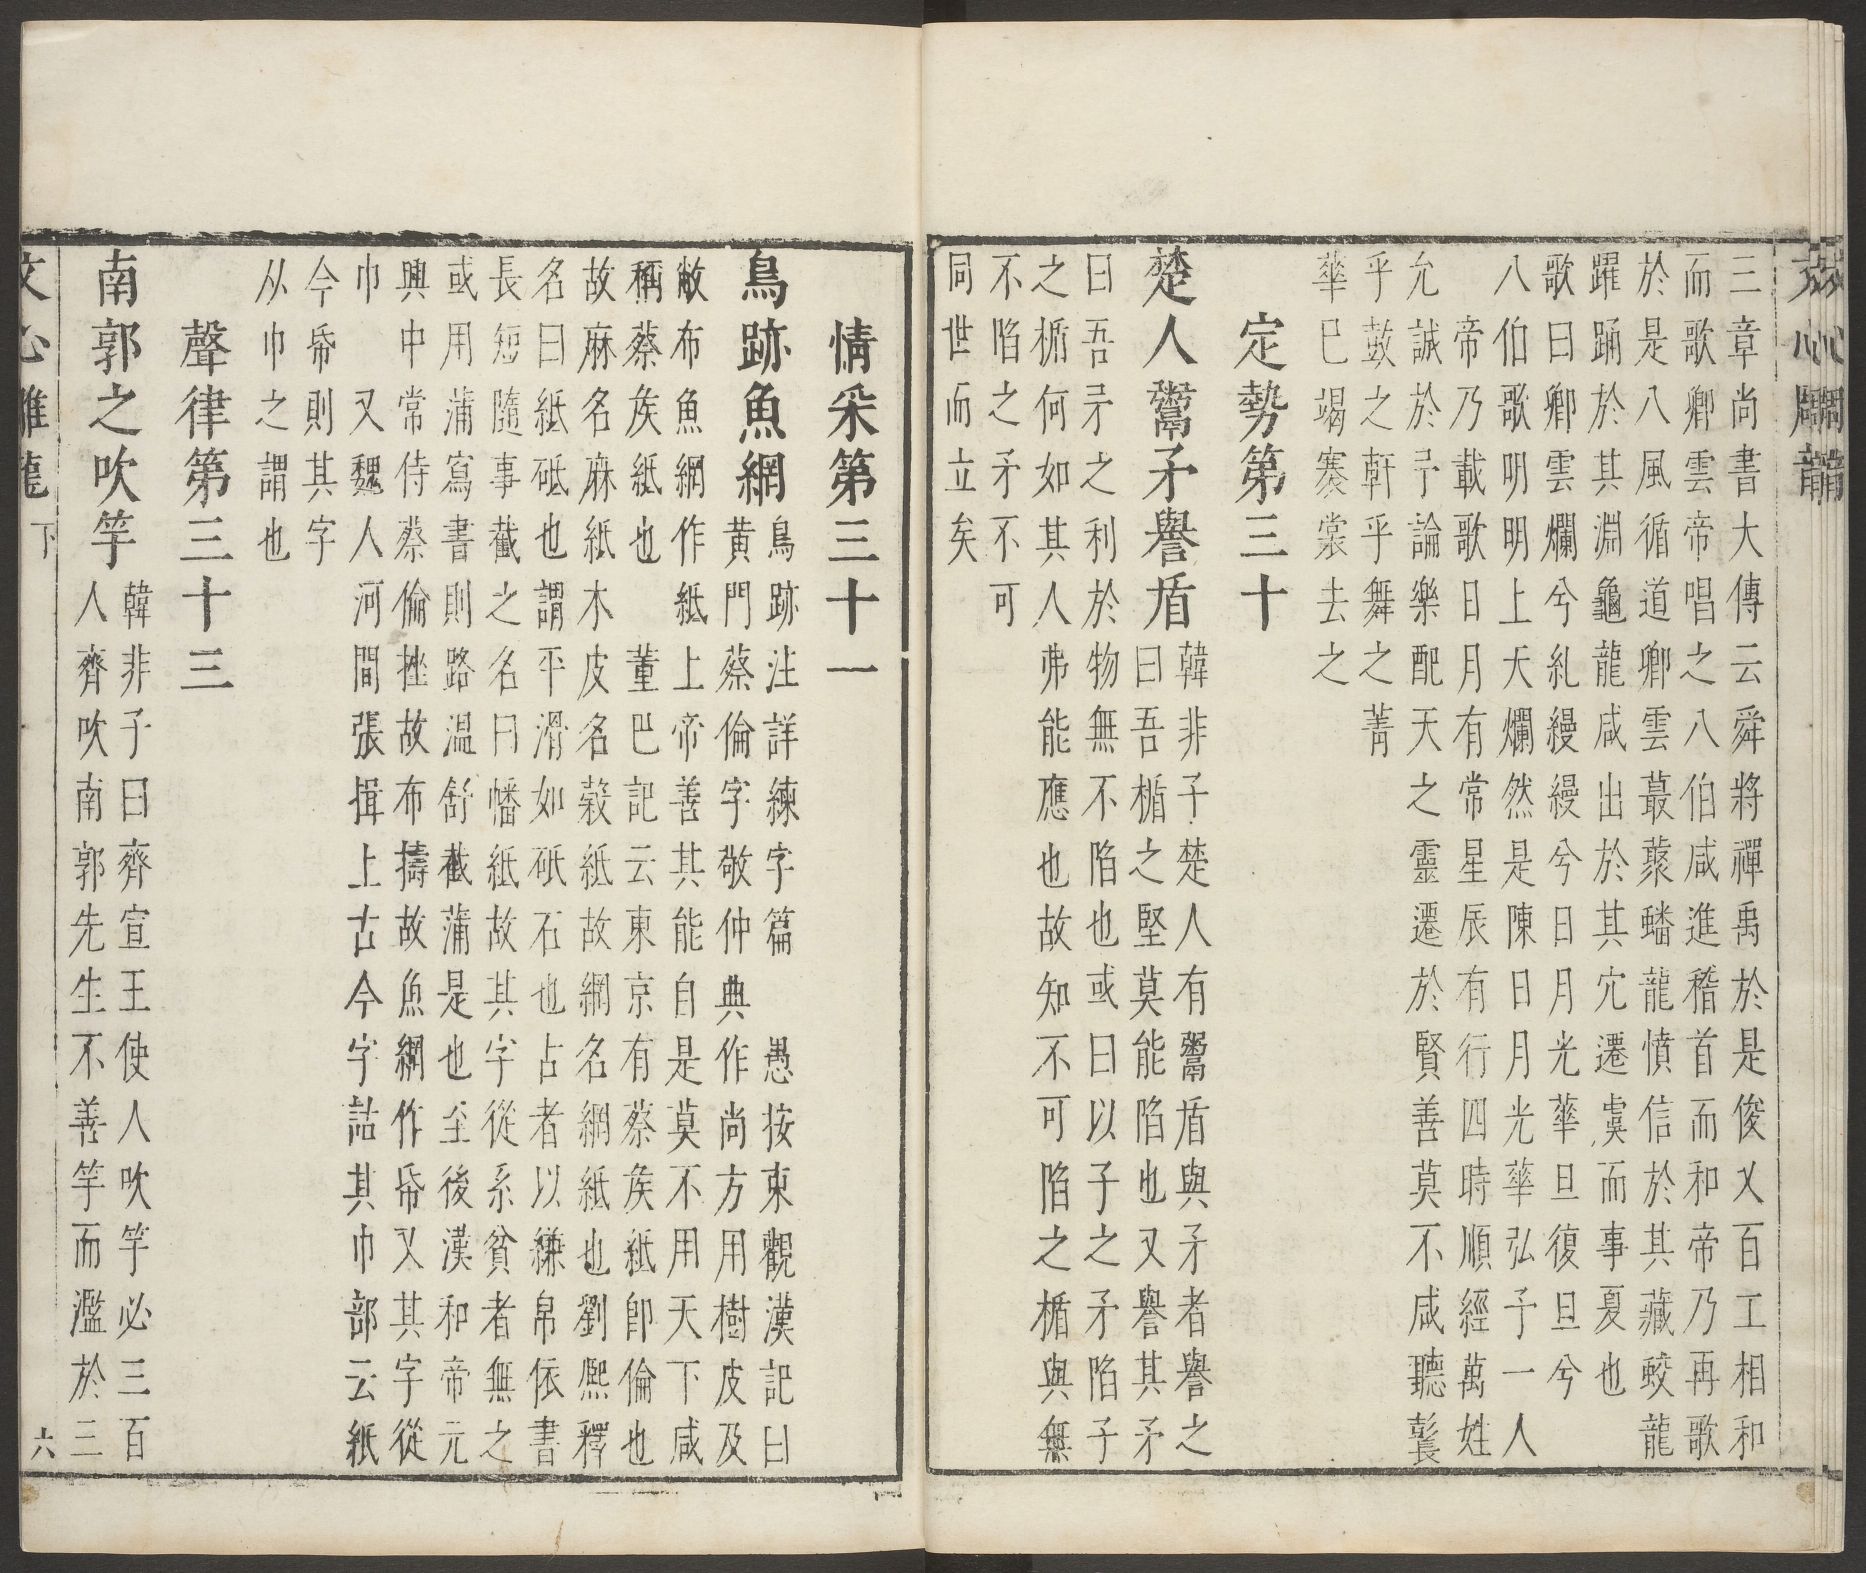 三章尚書大傳云舜將禪禹於是俊乂百工相和
而歌卿雲帝唱之八伯咸進稽首而和帝乃再歌
於是八風循道卿雲蕞藂蟠龍憤信於其藏蛟龍
躍踊於其淵龜龍咸出於其穴遷虞而事夏也
歌曰卿雲爛兮糺縵縵兮日月光華旦復旦兮
八伯歌明明上天爛然是陳日月光華弘予一人
帝乃載歌日月有常星辰有行四時順經萬姓
允誠於予論樂配天之靈遷於賢善莫不咸聽鼚
乎鼓之軒乎舞之菁
華巳竭褰裳去之
定勢第三十
楚人鬻矛譽盾
韓非子楚人有鬻盾與矛者譽之
曰吾楯之堅莫能陷也又譽其矛
曰吾矛之利於物無不陷也或曰以子之矛陷子
之楯何如其人弗能應也故知不可陷之楯與無
不陷之矛不可
同世而立矣
情采第三十一
鳥跡魚網
鳥跡注詳練字篇 愚按東觀漢記曰
黃門蔡倫字敬仲典作尚方用樹皮及
敝布魚網作紙上帝善其能自是莫不用天下咸
稱蔡矦紙也 董巴記云東京有蔡矦紙卽倫也
故麻名麻紙木皮名榖紙故網名網紙也劉熈釋
名曰紙砥也謂平滑如砥石也古者以縑帛依書
長短隨事截之名曰幡紙故其字從糸貧者無之
或用蒲寫書則路溫舒截蒲是也至後漢和帝元
興中常侍蔡倫挫故布擣故魚網作帋又其字從
巾 又魏人河間張揖上古今字詁其巾部云紙
今帋則其字
从巾之謂也
聲律第三十三
南郭之吹竽
韓非子曰齊宣王使人吹竽必三百
人齊吹南郭先生不善竽而濫於三
文心雕龍 下
六